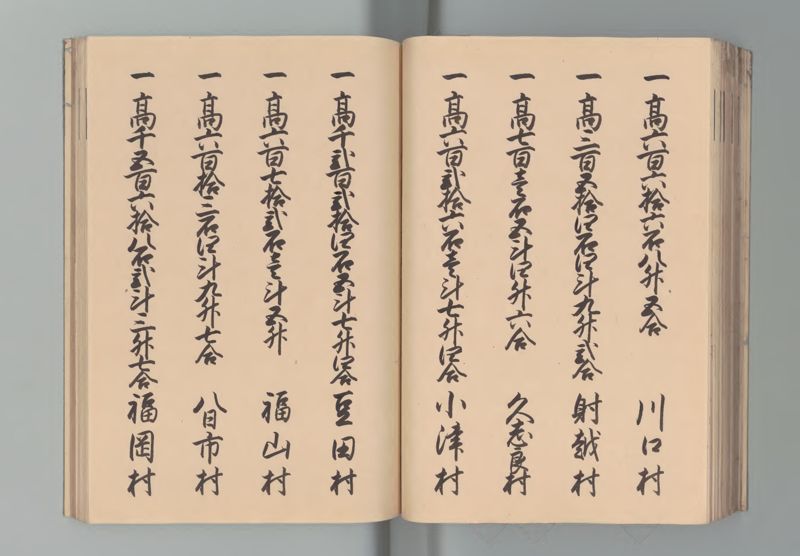 一高六百六拾六石八升五合 川口村
一高三百五拾四石四斗九升弐合 射越村
一高七百壱石五斗四升六合 久志良村
一高六百弐拾六石壱斗七升四合 小津村
一高千弐百弐拾四石五斗七升四合 豆田村
一高六百七拾弐石壱斗五升 福山村
一高六百拾三石四斗九升七合 八日市村
一高千五百六拾八石弐斗三升七合 福岡村